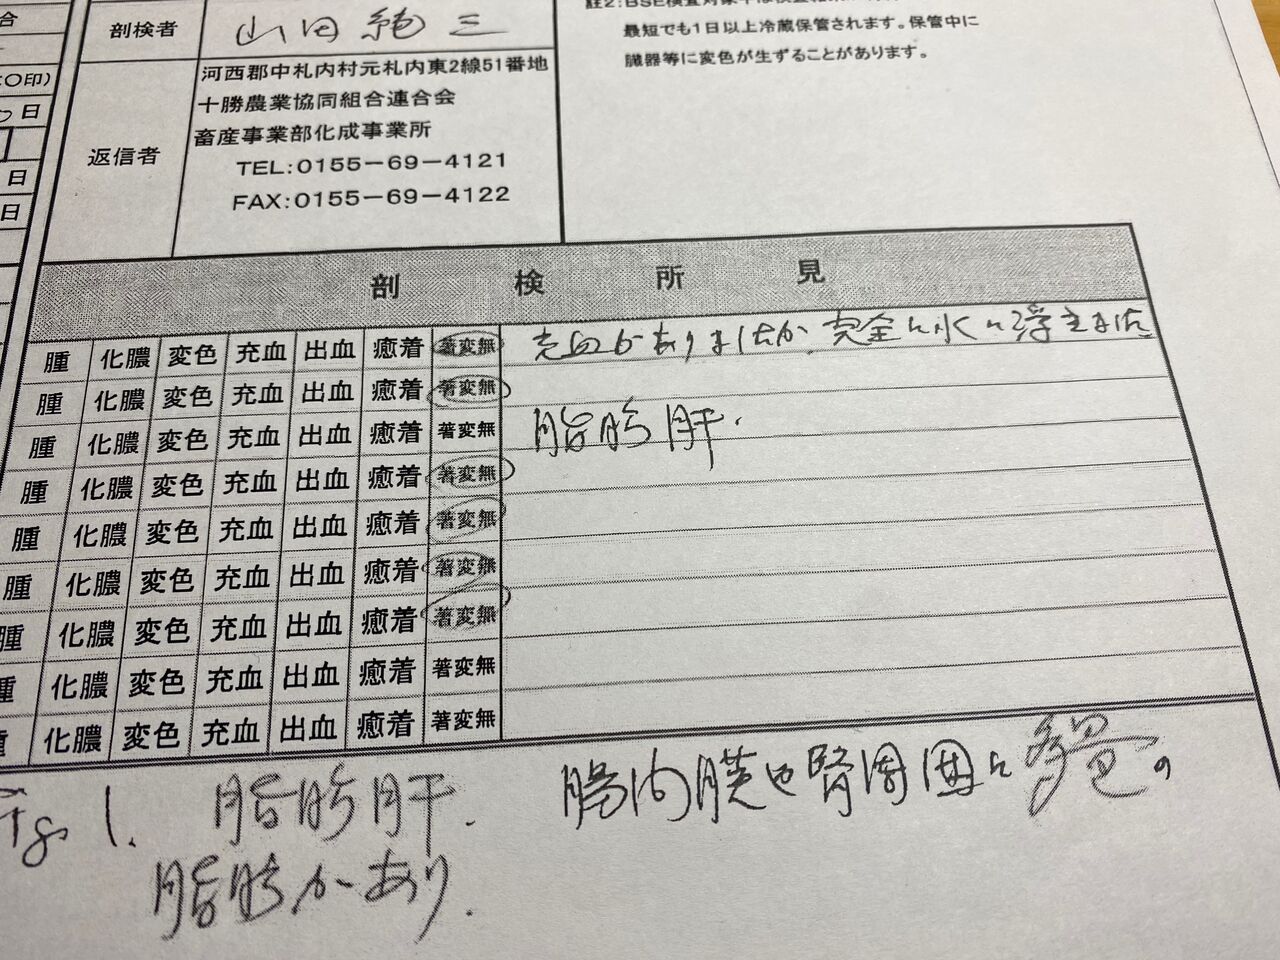 合
剖検者 山田純三
註2:BSE検査対象牛は検査
最短でも1日以上冷蔵保管されます。保管中に
臓器等に変色が生ずることがあります。
○印)
日
日
日
返信者
河西郡中札内村元札内東2線51番地
十勝農業協同組合連合会
畜産事業部化成事業所
TEL:0155-69-4121
FAX:0155-69-4122
剖検所見
腫 化膿 変色 充血 出血 癒着 著変無 充血がありましたが、完全に水に浮きました
腫 化膿 変色 充血 出血 癒着 著変無
腫 化膿 変色 充血 出血 癒着 著変無 脂肪肝.
腫 化膿 変色 充血 出血 癒着 著変無
腫 化膿 変色 充血 出血 癒着 著変無
腫 化膿 変色 充血 出血 癒着 著変無
腫 化膿 変色 充血 出血 癒着 著変無
腫 化膿 変色 充血 出血 癒着 著変無
腫 化膿 変色 充血 出血 癒着 著変無
1. 脂肪肝. 腸間膜や腎周囲に多量の
脂肪があり.